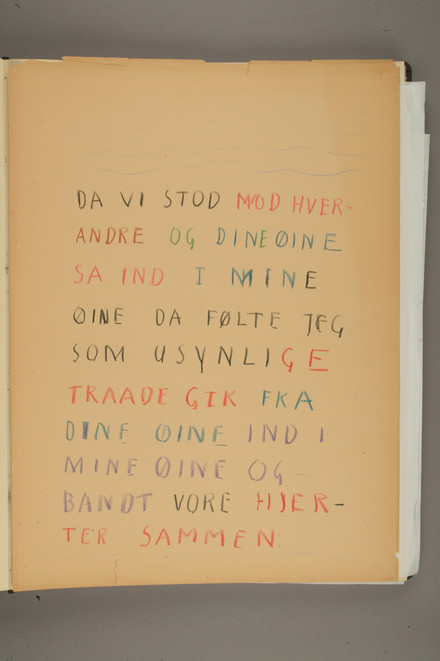 DA VI STOD MOD HVER-
ANDRE OG DINE ØINE
SA IND I MINE
ØINE DA FØLTE JEG
SOM USYNLIGE
TRAADE GIK FRA
DINE ØINE IND I
MINE ØINE OG -
BANDT VORE HJER-
TER SAMMEN